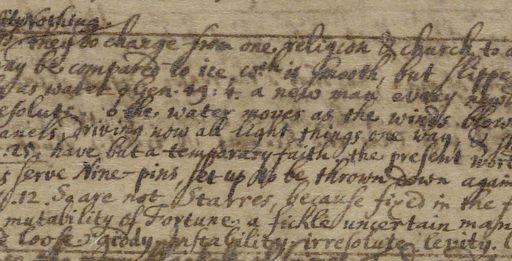 Nothing.
they do change from one religion & church to a
may be compared to ice, wch is smooth, but slippe
as water. Gen. 49: 4. a new man every
resolut: the water moves as the winds blow
driving now all light things one way &
25. have but a temporary faith the present wor
serve Nine-pins, set up to be thrown down again
12. & are not Starres, because fixed in the f
mutability of Fortune. a fickle uncertain ma
loose giddy instability irresolute levity.